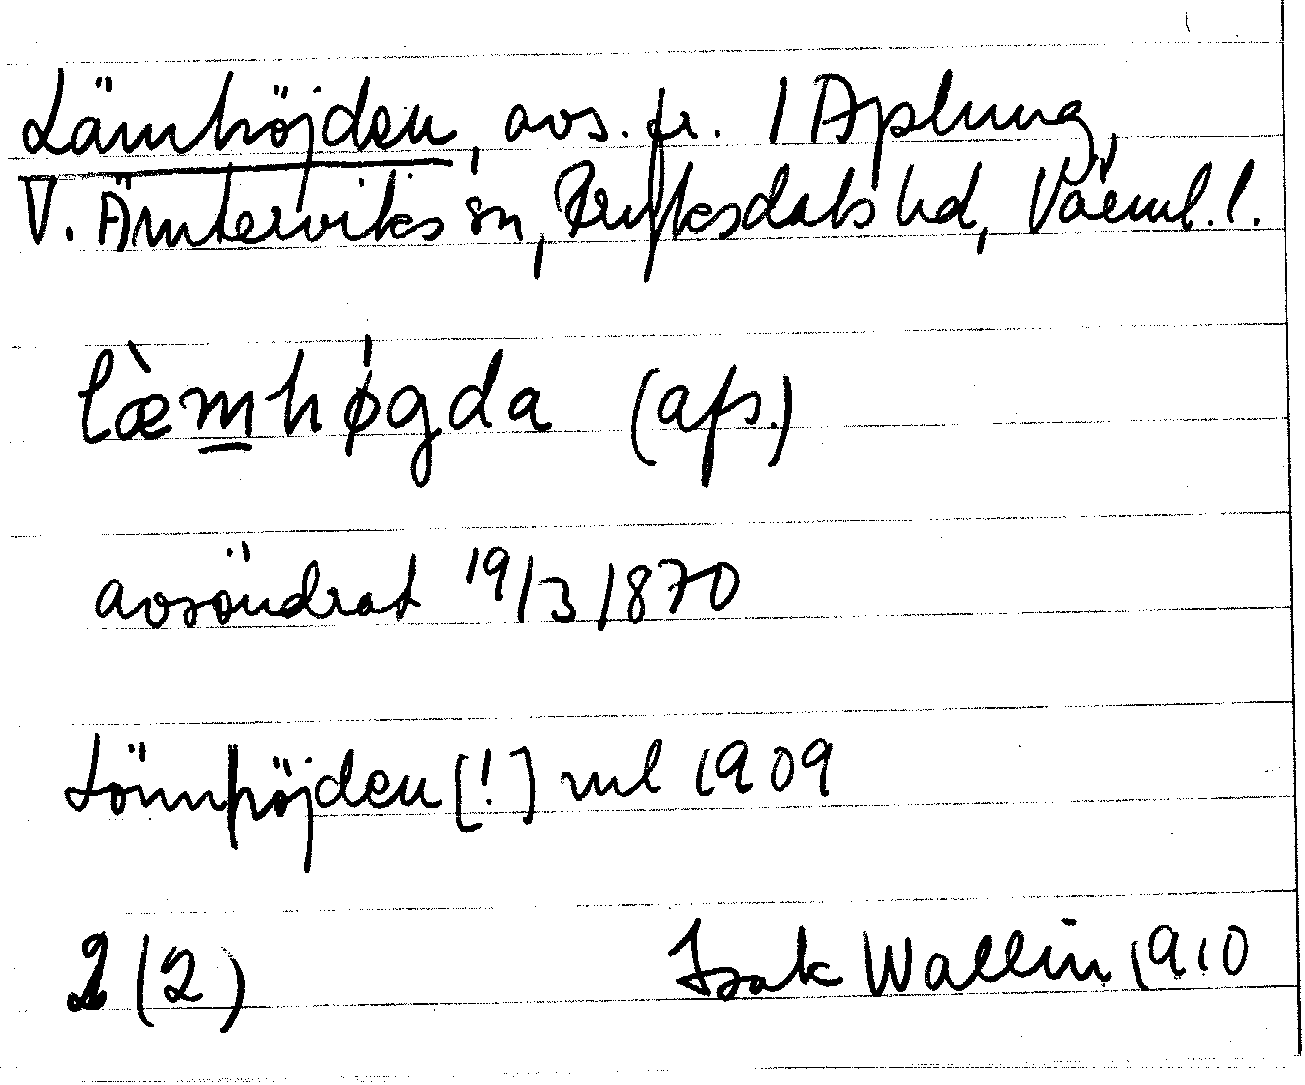 Lämhöjden, avs. fr. 1 Aplung,
V. Ämterviks sn, Fryksdals hd, Värml. l.
læ̀mhøgda (afs.)
avsöndrat 19/3 1870
Lönnhöjden [!] ml 1909
2 (2) Isak Wallin 1910